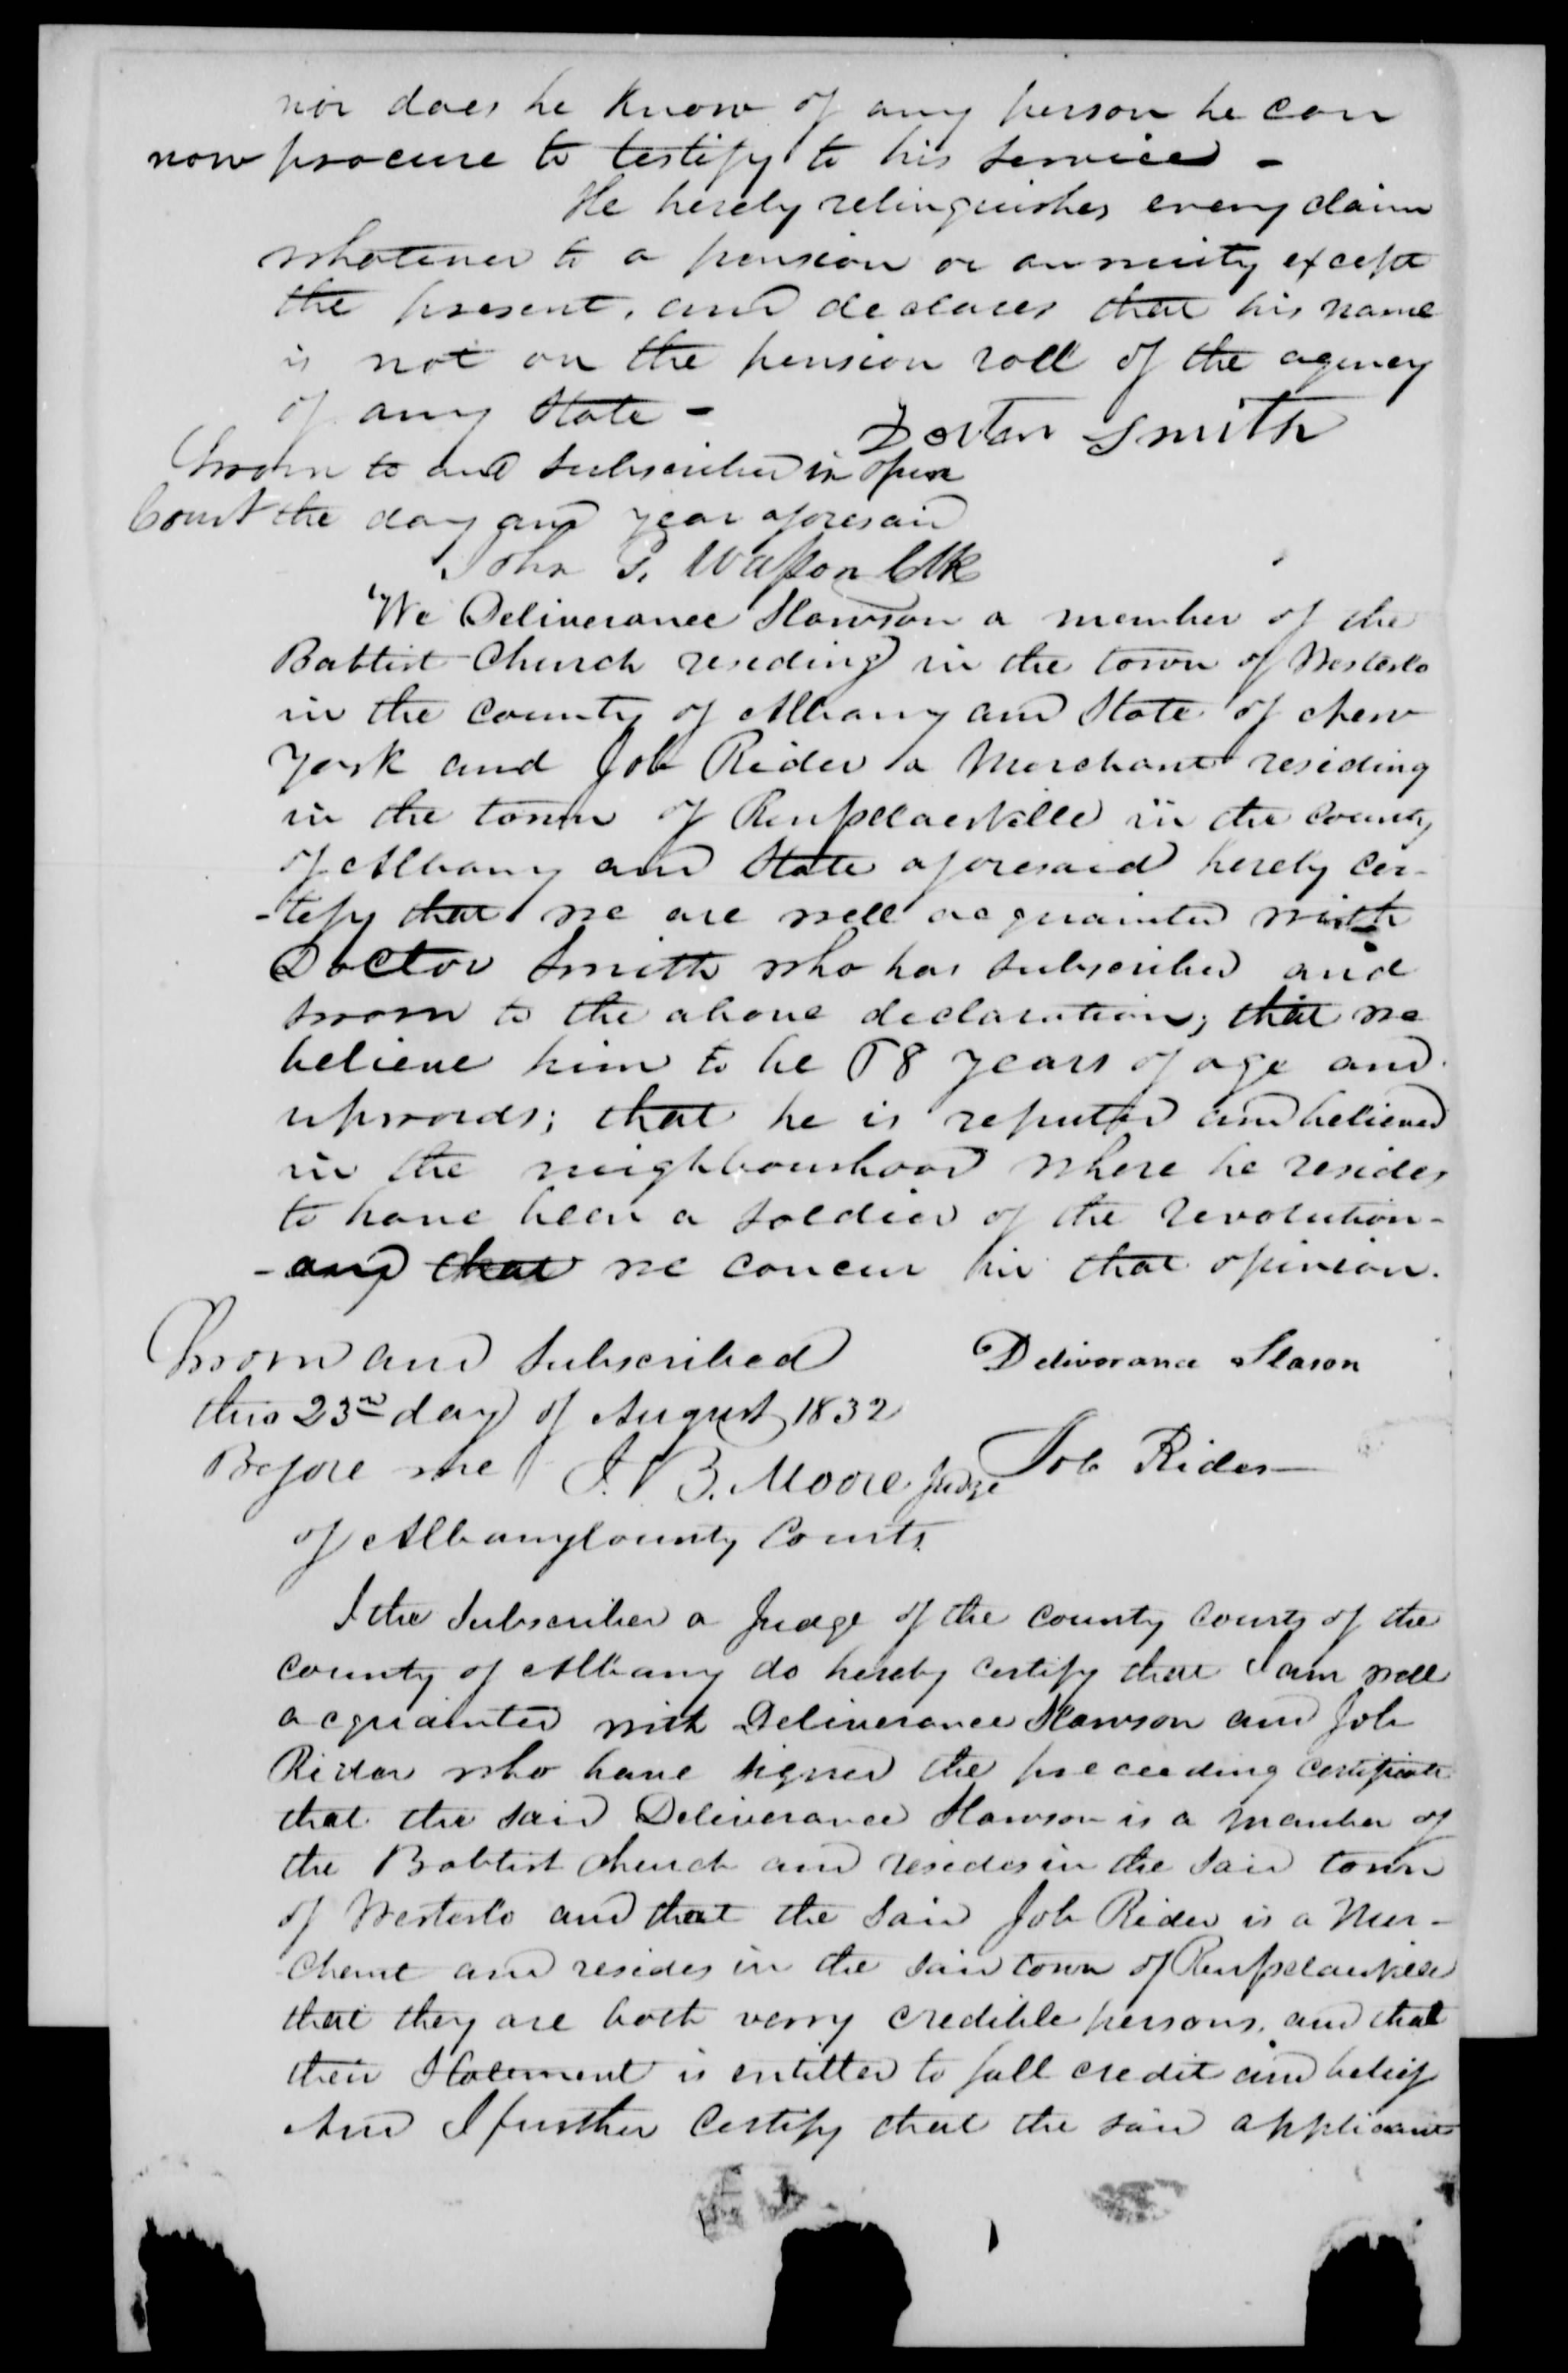 nor does he know of any person he can
now procure to testify to his service -
He hereby relinquishes every claim
whatever to a pension or annuity except
the present, and declares that his name
is not on the pension roll of the agency
of any State -
Docter Smith
Sworn to and subscribed in open
Court the day and year aforesaid
John S. Wasson Clk
We Deliverance Slawson a member of the
Babtist Church residing in the town of Westerlo
in the County of Albany and State of New
York and Job Rider a Merchant residing
in the town of Rensselaerville in the County
of Albany and State aforesaid hereby cer-
-tefy that we are well acquainted with
Doctor Smith who has subscribed and
sworn to the above declaration; that we
believe him to be 68 years of age and
upwards; that he is reputed and believed
in the neighbourhood where he resides
to have been a soldier of the revolution -
- and that we concur in that opinion.
Sworn and Subscribed
this 23rd day of August 1832
Before me J. B. Moore Judge
of Albany County Courts
Deliverance Slason
Job Rider
I the Subscriber a Judge of the County Courts of the
County of Albany do hereby certify that I am well
acquainted with Deliverance Slawson and Job
Rider who have signed the preceeding certificate
that the said Deliverance Slawson is a member of
the Babtist Church and resides in the said town
of Westerlo and that the said Job Rider is a Mer-
chant and resides in the said town of Rensselaerville
that they are both verry credible persons, and that
their Statement is entitled to full credit and belief
And I further Certify that the said applicant